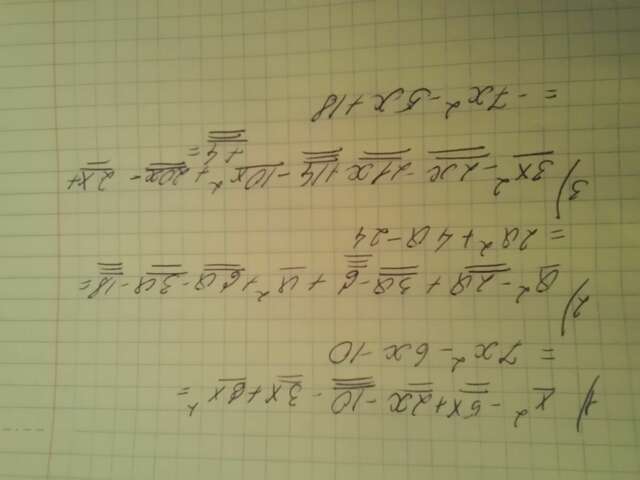 1) x² - 5x + 2x - 10 - 3x + 6x² =
= 7x² - 6x - 10
2) a² - 2a + 3a - 6 + a² + 6a - 3a - 18 =
= 2a² + 4a - 24
3) 3x² - 2x - 21x + 14 - 10x² + 20x - 2x +
+ 4 =
= - 7x² - 5x + 18